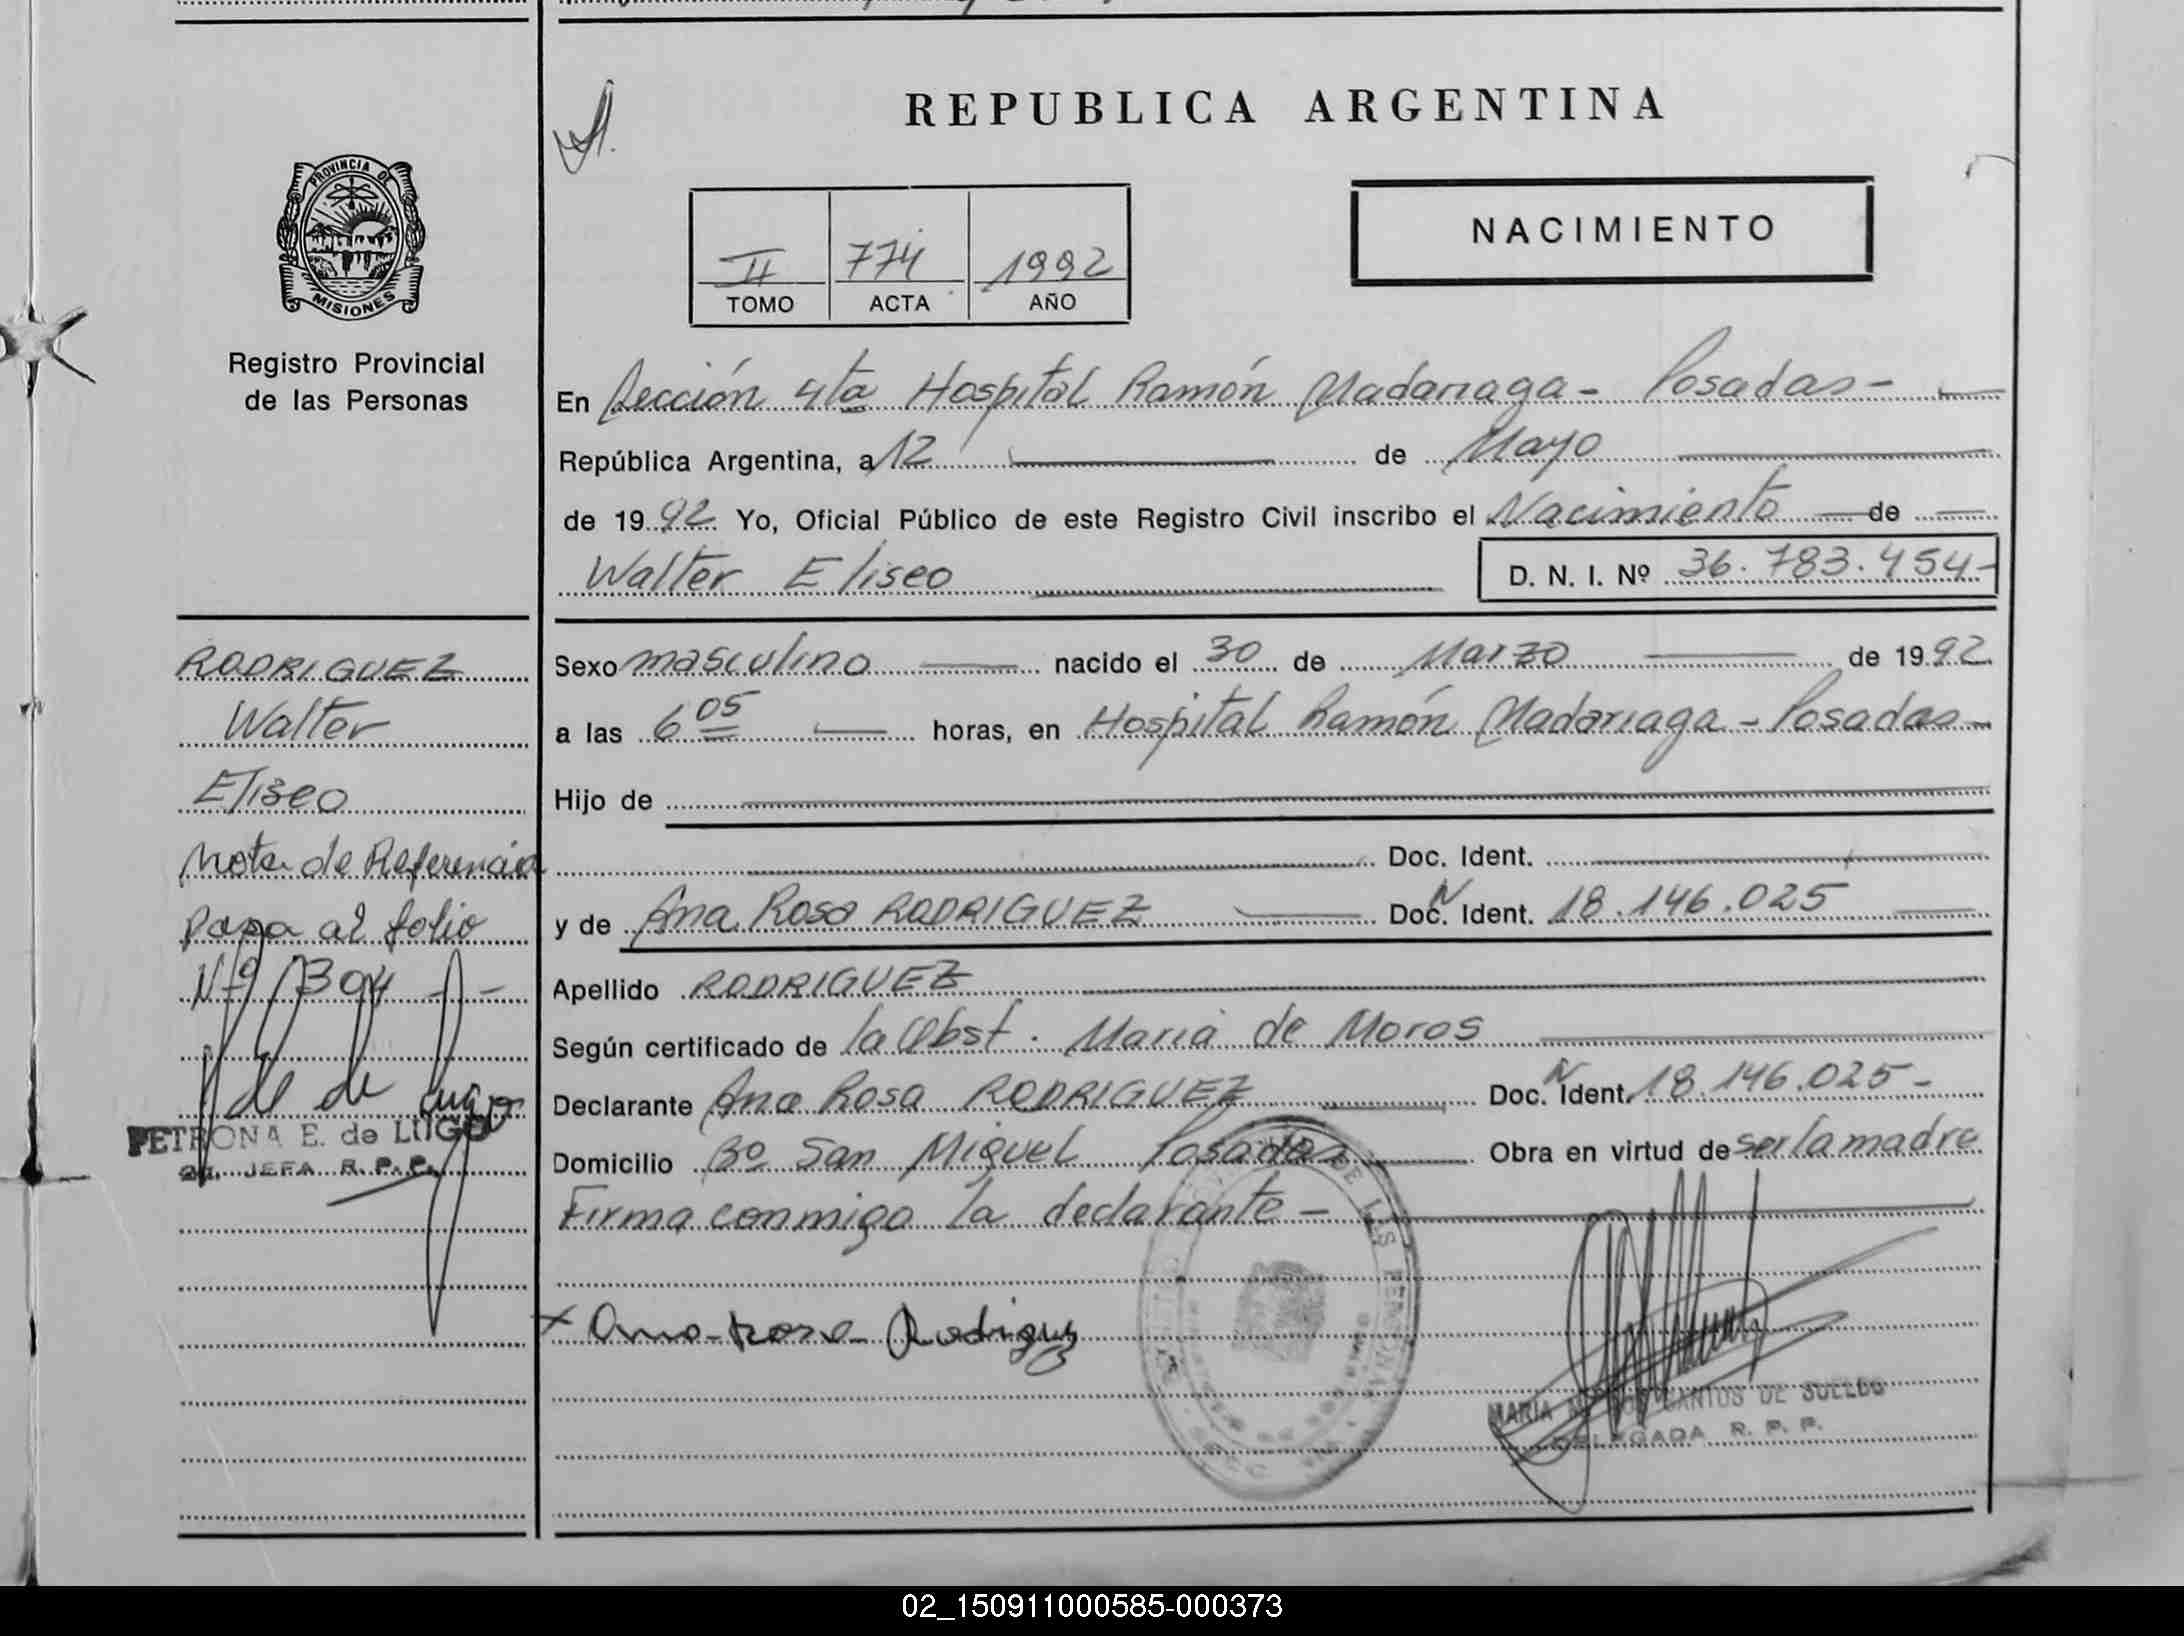 REPUBLICA ARGENTINA
NACIMIENTO
II 774 1992
TOMO ACTA AÑO
PROVINCIA DE
MISIONES
Registro Provincial
de las Personas
En Sección 4ta Hospital Ramón Madariaga - Posadas -
República Argentina, a 12 de Mayo
de 1992 Yo, Oficial Público de este Registro Civil inscribo el Nacimiento de
Walter Eliseo D. N. I. Nº 36.783.454-
RODRIGUEZ
Walter
Eliseo
Nota de Referencia
Pasa al folio
Nº 304 -
de Lugo
PETRONA E. de LUGO
JEFA R. P. P.
Sexo masculino nacido el 30 de Marzo de 1992
a las 6 05 horas, en Hospital Ramón Madariaga - Posadas -
Hijo de
Doc. Ident.
y de Ana Rosa RODRIGUEZ Doc. N Ident. 18.146.025
Apellido RODRIGUEZ
Según certificado de la Obst. Maria de Moros
Declarante Ana Rosa RODRIGUEZ Doc. N Ident. 18.146.025 -
Domicilio Bº San Miguel Posadas Obra en virtud de ser la madre
Firma conmigo la declarante -
x Ana Rosa Rodriguez
MARIA SANTOS DE SUELDO
DELEGADA R. P. P.
02_150911000585-000373